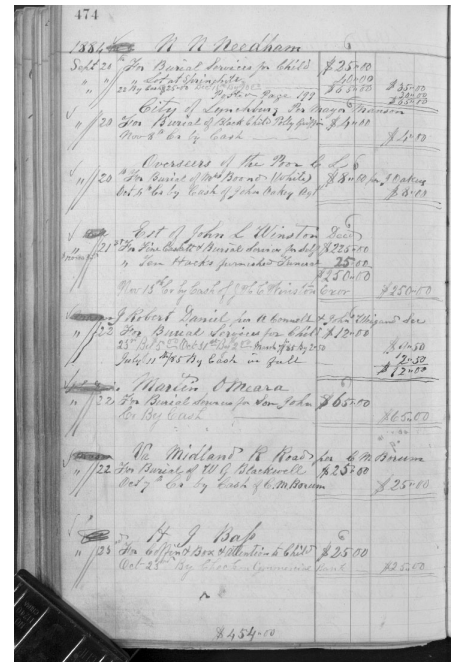 474
1884 N N Needham
Sept 20th For Burial Services for Child $25.00
" " " Lot at Springhill 40.00
$65.00 $35.00
Page 199 30.00
$65.00
City of Lynchburg Per Mayor Manson
" 20 For Burial of Black Child $4.00
Nov 8th Cr by Cash $4.00
Overseers of the Poor
" 20th For Burial of Mrs Boond (White) $8.00 J Oakey
Oct 4th Cr by Cash of John Oakey Agt $8.00
Est of John L Winston Decd
" 21st For Fine Casket & Burial Services for Self $225.00
" Ten Hacks furnished Funeral 25.00
$250.00
Nov 15th Cr by Cash of Winston Exor $250.00
J Robert Daniel
" 22 For Burial Services for Child $12.00
July 11th /85 By Cash in full
$12.00
Martin OMeara
" 22 For Burial Services for Son John $65.00
Cr By Cash $65.00
Va Midland R Road per C M Borum
" 22 For Burial of W G Blackwell $25.00
Oct 7th Cr by Cash of C. M Borum $25.00
H J Bass
" 23 For Coffin & Box & Attention to Child $25.00
Oct 25th By Check on Bank $25.00
$454.00